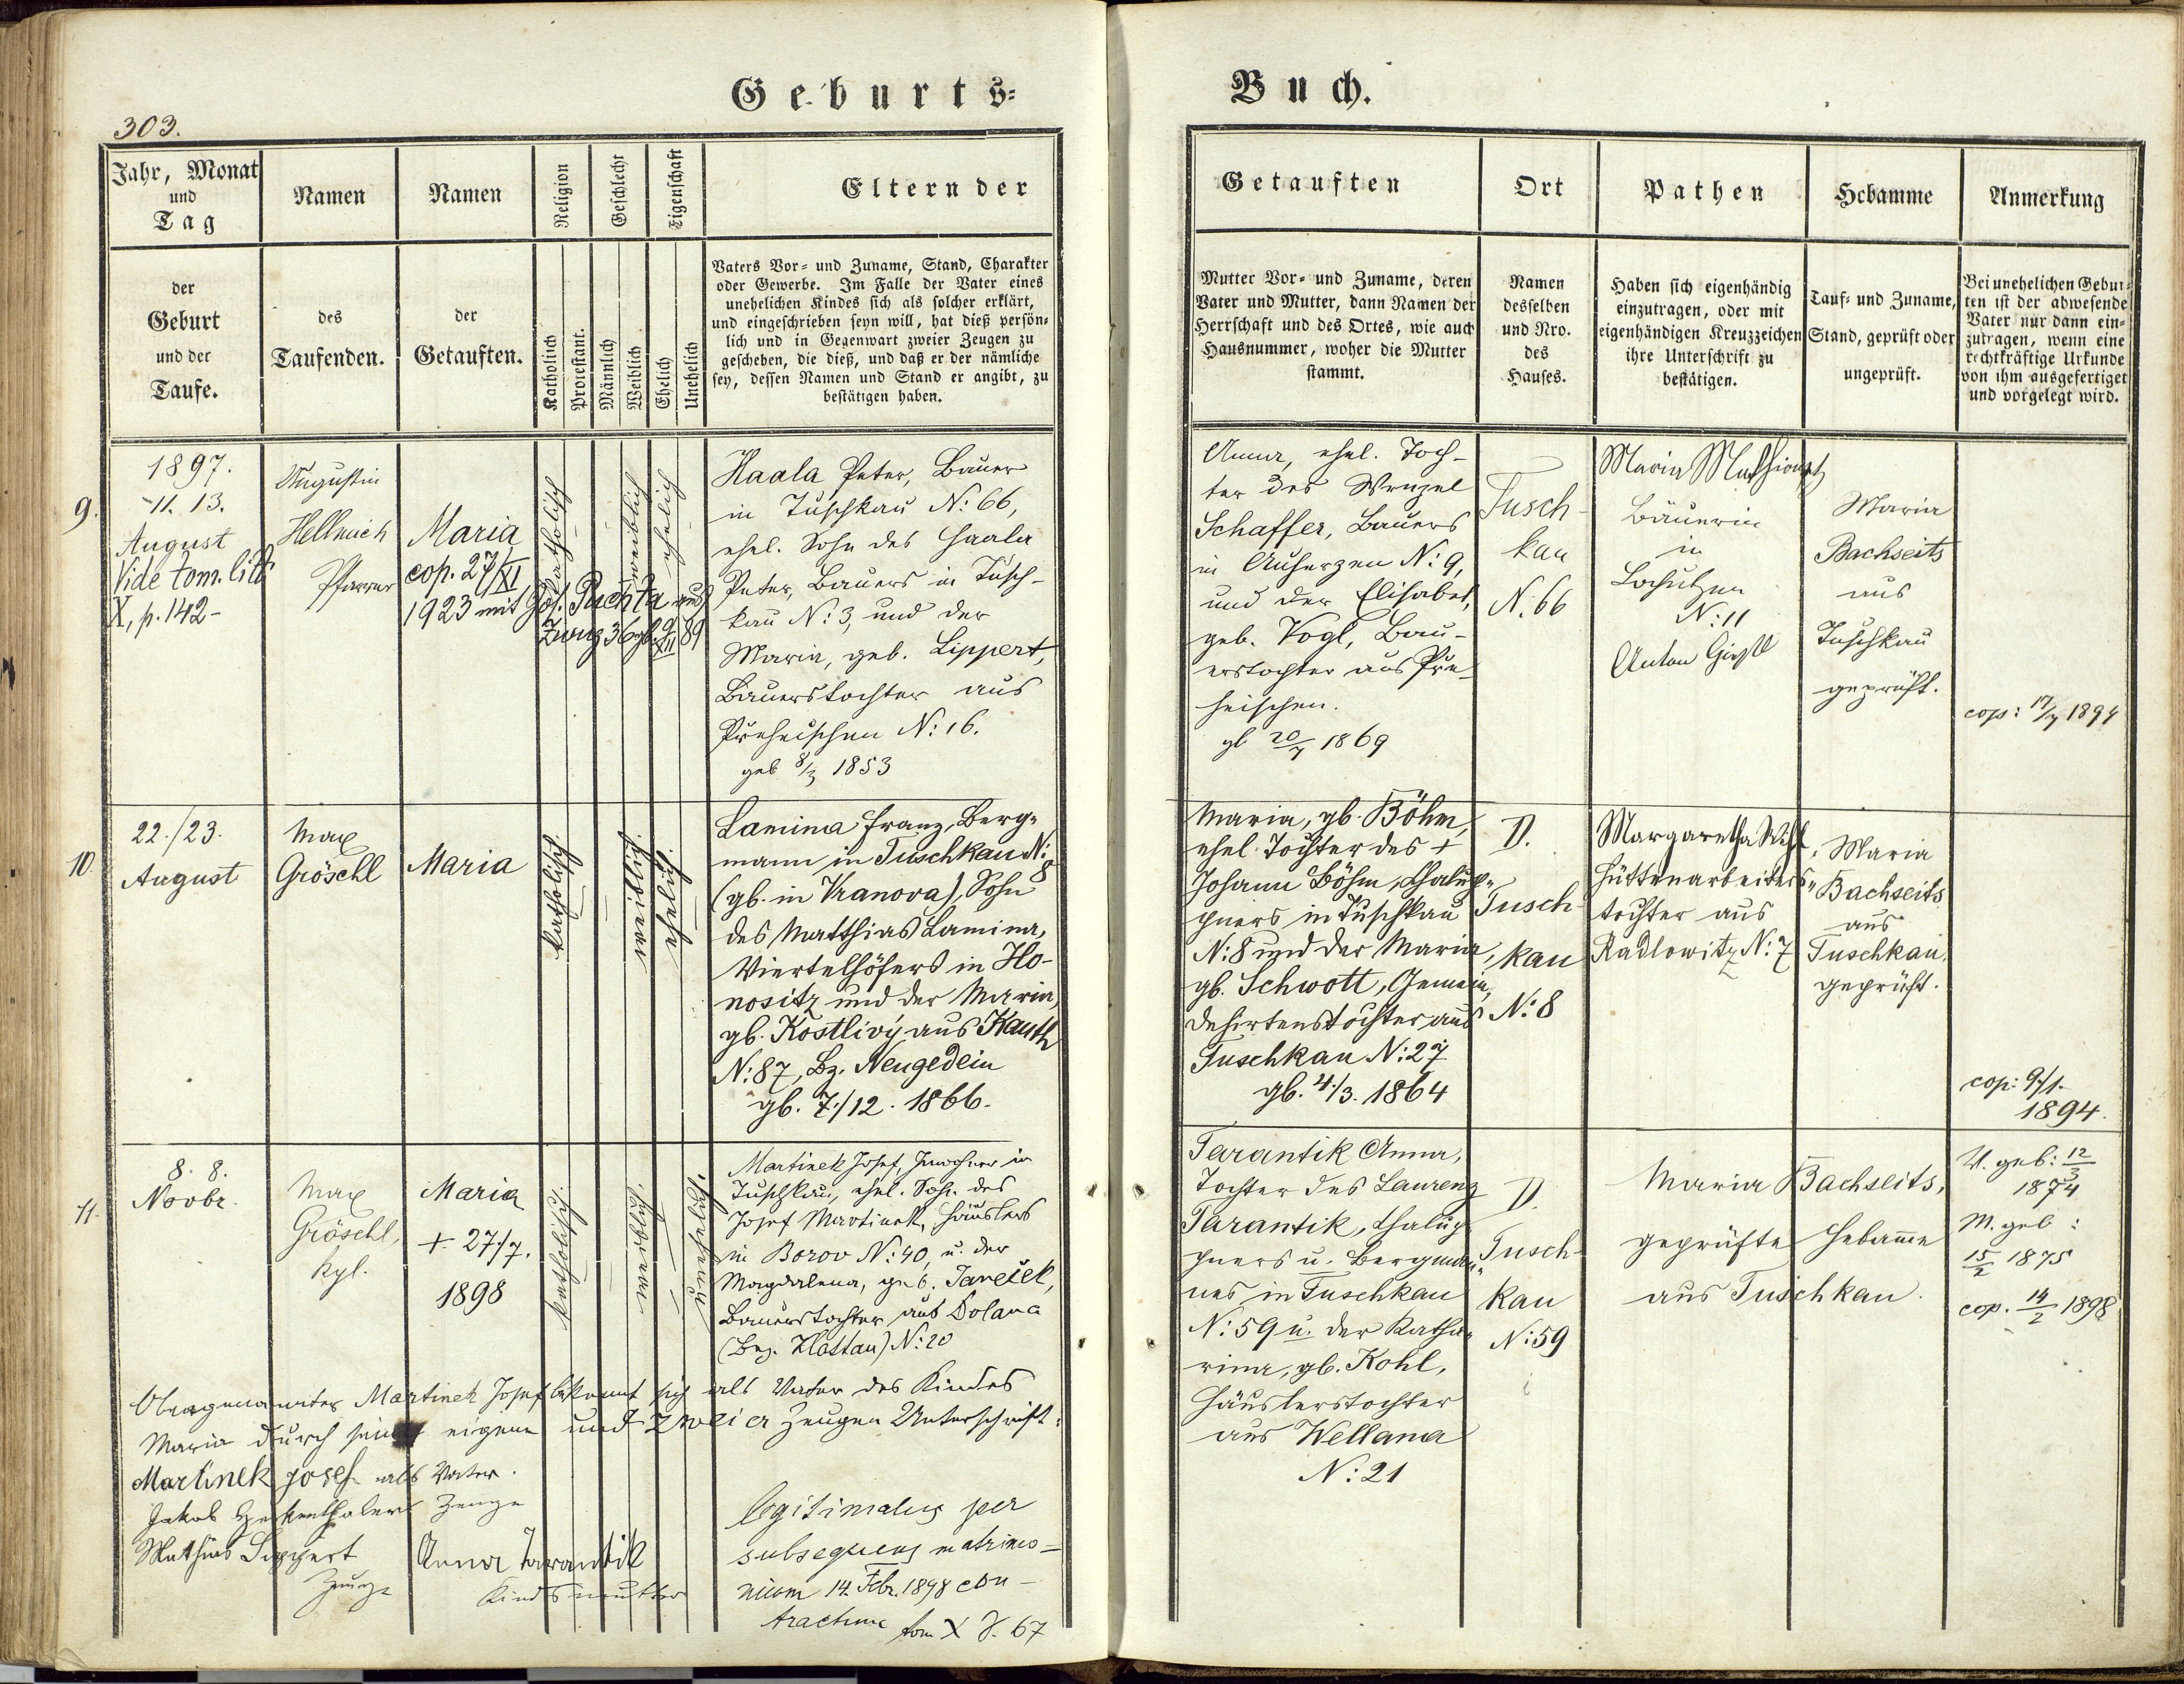 Geburts=
303.
Jahr, Monat
und
Tag
Namen
Namen
Religion
Geschlecht
Eigenschaft
Eltern der
der
Geburt
und der
Taufe.
des
Taufenden.
der
Getauften.
Katholisch
Protestant.
Männlich
Weiblich
Ehelich
Unehelich
Vaters Vor= und Zuname, Stand, Charakter
oder Gewerbe. Im Falle der Vater eines
unehelichen Kindes sich als solcher erklärt,
und eingeschrieben seyn will, hat dieß persön=
lich und in Gegenwart zweier Zeugen zu
geschehen, die dieß, und daß er der nämliche
sey, dessen Namen und Stand er angibt, zu
bestätigen haben.
9.
1897.
11. 13.
August
Vide tom. litt
X, p. 142-
Augustin
Hellmich
Pfarrer
Maria
cop. 27/XI
1923 mit Jos. Puchta aus
Zwug 36 gb. 9/XII 89
katholisch
weiblich
ehelich
Haala Peter, Bauer
in Tuschkau N: 66,
ehel. Sohn des Haala
Peter, Bauers in Tusch-
kau N: 3, und der
Maria, geb. Lippert,
Bauerstochter aus
Preheischen N: 16.
geb 8/3 1853
10.
22./23.
August
Max
Gröschl
Maria
katholisch.
weiblich.
ehelich.
Lamina Franz, Berg=
mann in Tuschkau N: 8
(gb. in Vranova), Sohn
des Matthias Lamina,
Viertelhöfers in Ho-
nositz und der Maria,
gb. Kostlivý aus Kauth
N: 87, Bz. Neugedein
gb. 7./12. 1866.
11.
8. 8.
Novbr.
Max
Gröschl,
Kpl.
Maria
+ 27/7.
1898
katholisch.
weiblich.
unehelich.
Martinek Josef, Inwohner in
Tuschkau, ehel. Sohn des
Josef Martinek, Häuslers
in Borov N: 40, u. der
Magdalena, geb. Janeček,
Bauerstochter aus Dolana
(Bez. Klattau) N: 20
Obengenannter Martinek Josef bekennt sich als Vater des Kindes
Maria durch seine eigene und zweier Zeugen Unterschrift:
Martinek Josef als Vater.
Jakob Zeuge
Mathias Lippert
Zeuge
Anna Tarantik
Kindsmutter
legitimatus per
subsequens matrimo-
nium 14. Febr. 1898 con-
tractum tom X f. 67
Buch.
Getauften
Ort
Pathen
Hebamme
Anmerkung
Mutter Vor= und Zuname, deren
Vater und Mutter, dann Namen der
Herrschaft und des Ortes, wie auch
Hausnummer, woher die Mutter
stammt.
Namen
desselben
und Nro.
des
Hauses.
Haben sich eigenhändig
einzutragen, oder mit
eigenhändigen Kreuzzeichen
ihre Unterschrift zu
bestätigen.
Tauf= und Zuname,
Stand, geprüft oder
ungeprüft.
Bei unehelichen Gebur=
ten ist der abwesende
Vater nur dann ein=
zutragen, wenn eine
rechtkräftige Urkunde
von ihm ausgefertiget
und vorgelegt wird.
Anna, ehel. Toch-
ter des Wenzel
Schaffer, Bauers
in Auherzen N: 9,
und der Elisabet,
geb. Vogl, Bau-
erstochter aus Pre-
heischen.
gb 20/7 1869
Tusch-
kau
N. 66
Maria
Bäuerin
in
Lochutzen
N: 11
Anton
Maria
Bachseits
aus
Tuschkau
geprüft.
cop: 17/7 1894
Maria, gb. Böhm,
ehel. Tochter des +
Johann Böhm, Chalup=
pners in Tuschkau
N: 8 und der Maria,
gb. Schwott, Gemein=
dehirtenstochter aus
Tuschkau N: 27
gb. 4./3. 1864
D.
Tusch-
kau
N: 8
Margaretha
Hüttenarbeiters=
tochter aus
Radlowitz N: 7
Maria
Bachseits
aus
Tuschkau.
geprüft.
cop: 9./1.
1894.
Tarantik Anna,
Tochter des Laurenz
Tarantik, Chalup=
pners u. Bergman=
nes in Tuschkau
N: 59 u. der Katha=
rina, gb. Kohl,
Häuslerstochter
aus Wellana
N: 21
D.
Tusch-
kau
N: 59
Maria Bachseits,
geprüfte Hebamme
aus Tuschkau.
V. geb: 12/3
1874
M. geb:
15/2 1875
cop. 14/2 1898